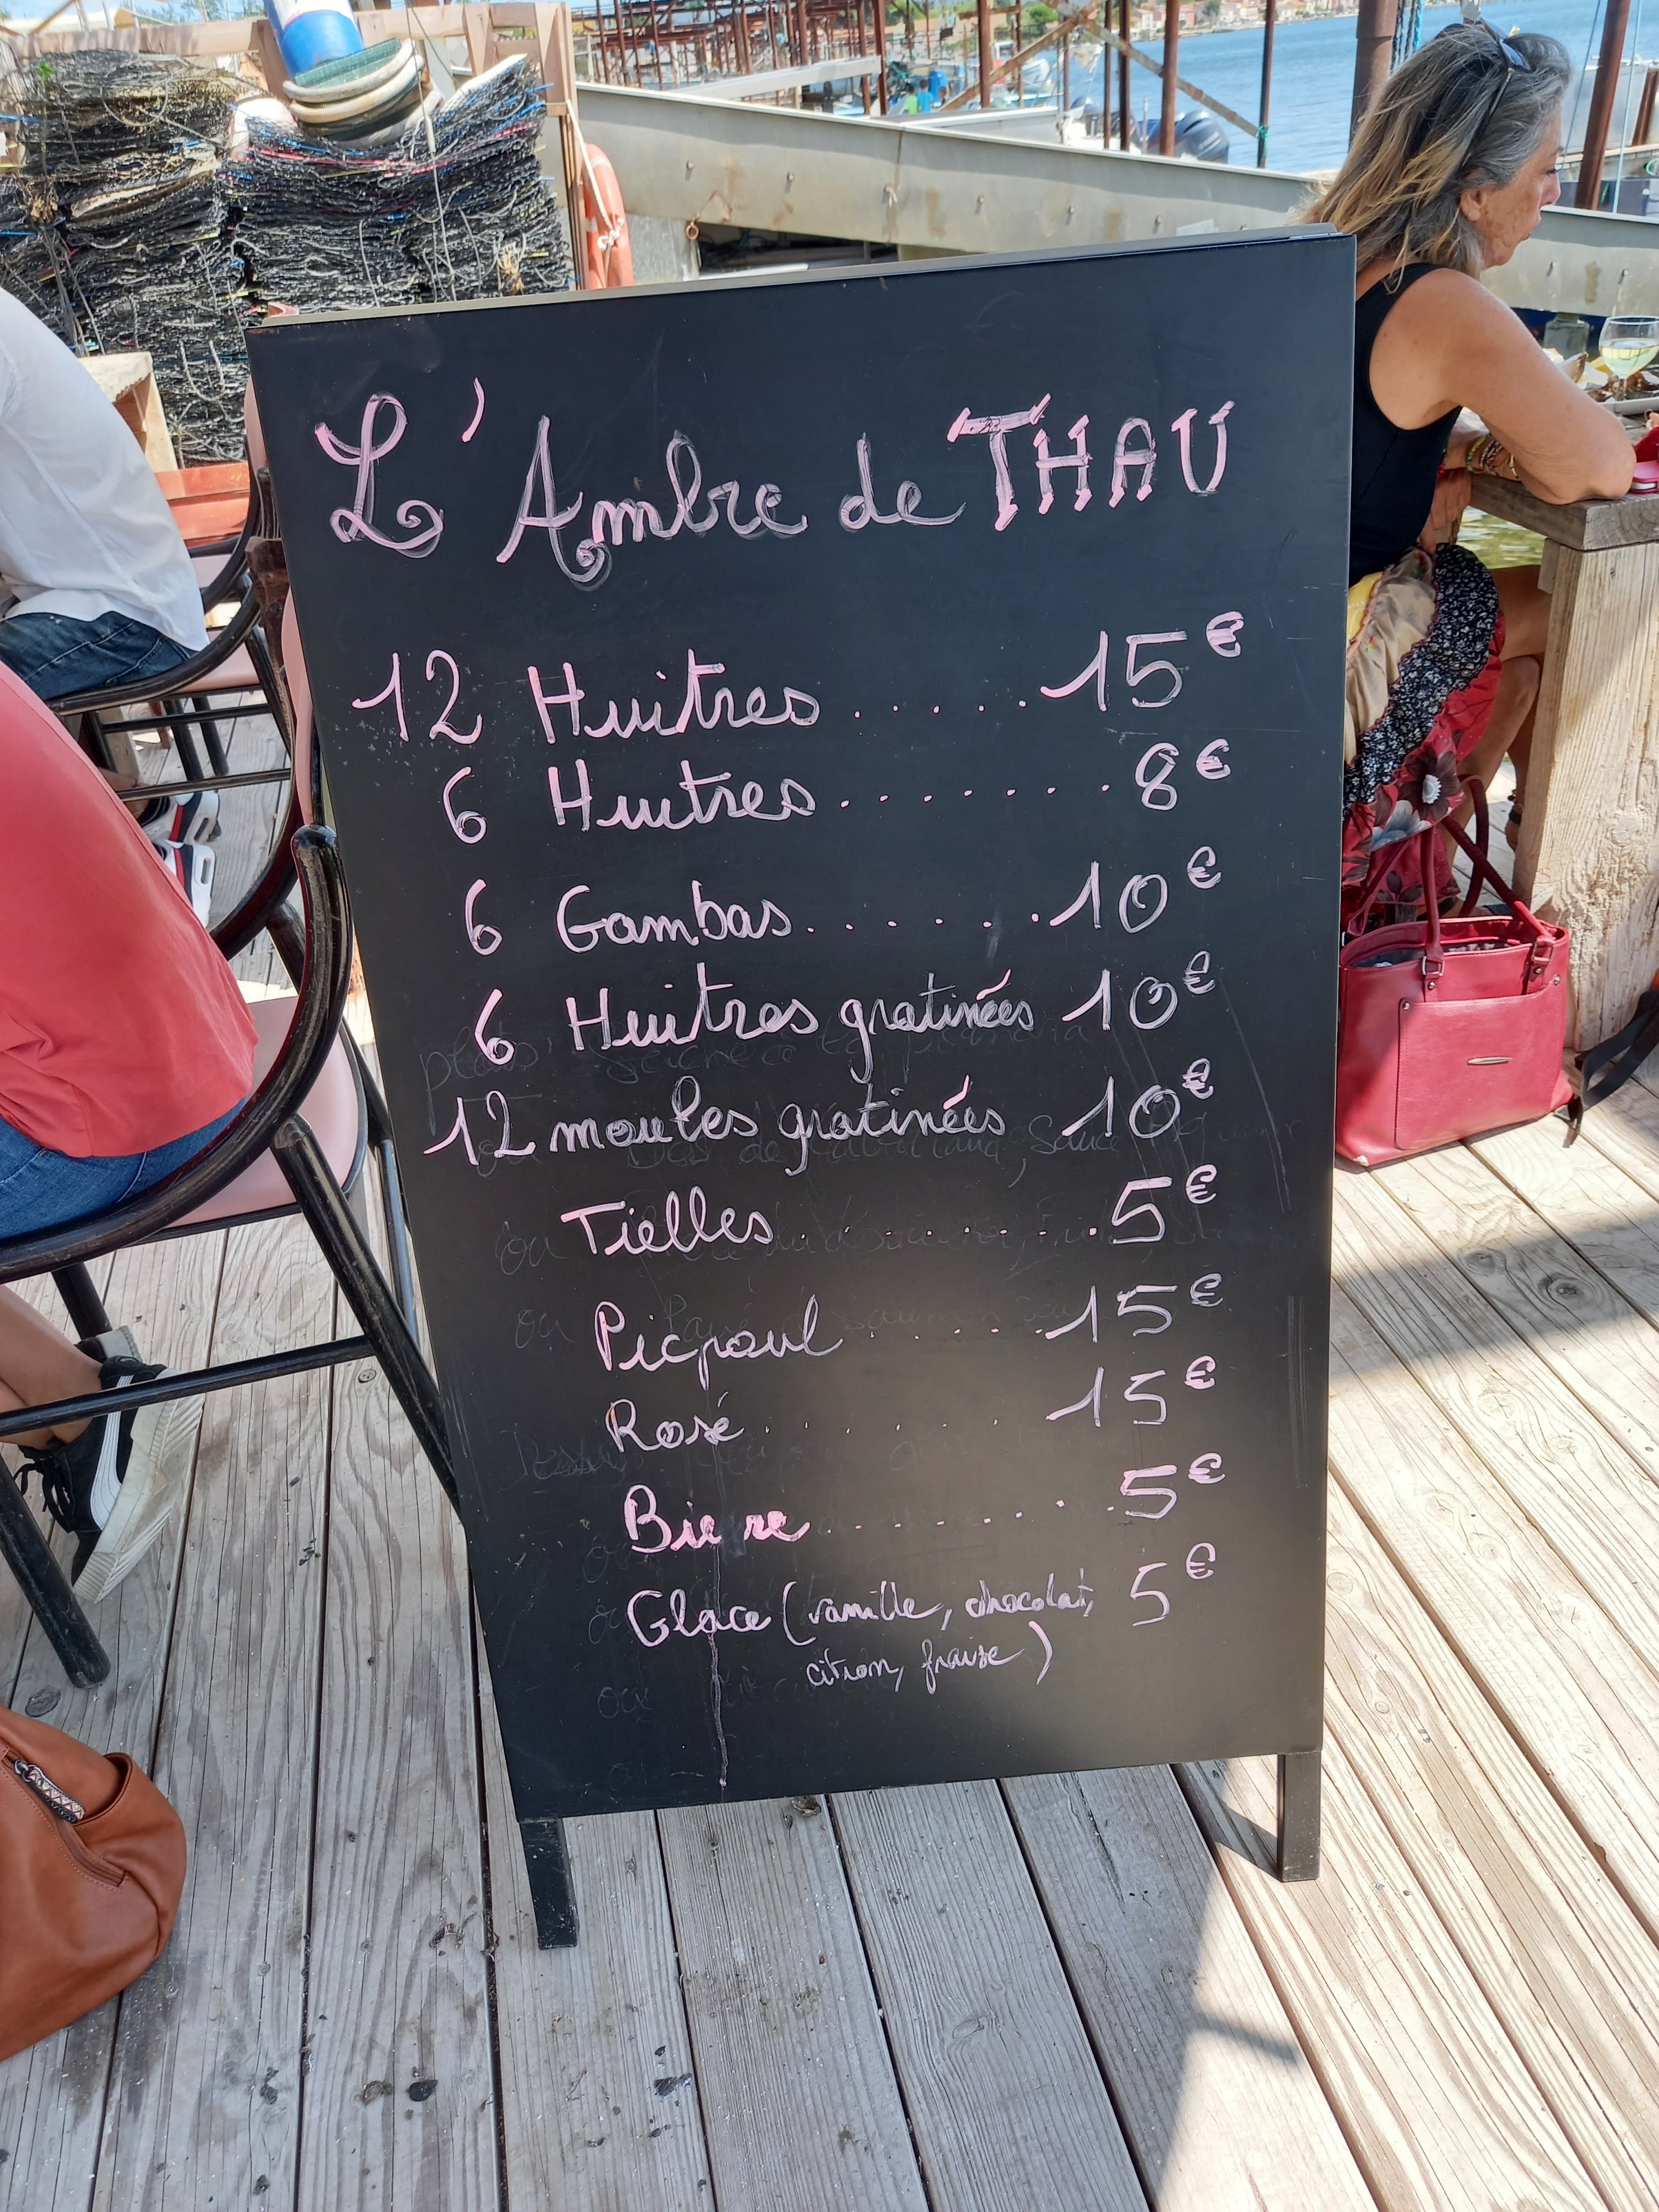 L'Ambre de THAU
12 Huitres ...... 15€
6 Huitres ........ 8€
6 Gambas ....... 10€
6 Huitres gratinées 10€
12 moules gratinées 10€
Tielles ......... 5€
Picpoul ...... 15€
Rosé ...... 15€
Biere ......... 5€
Glace (vanille, chocolat, 5€
citron, fraise)